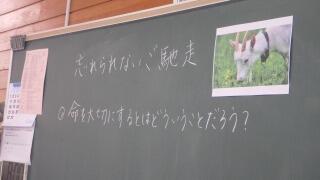 忘れられないご馳走
◎命を大切にするとはどういうことだろう？